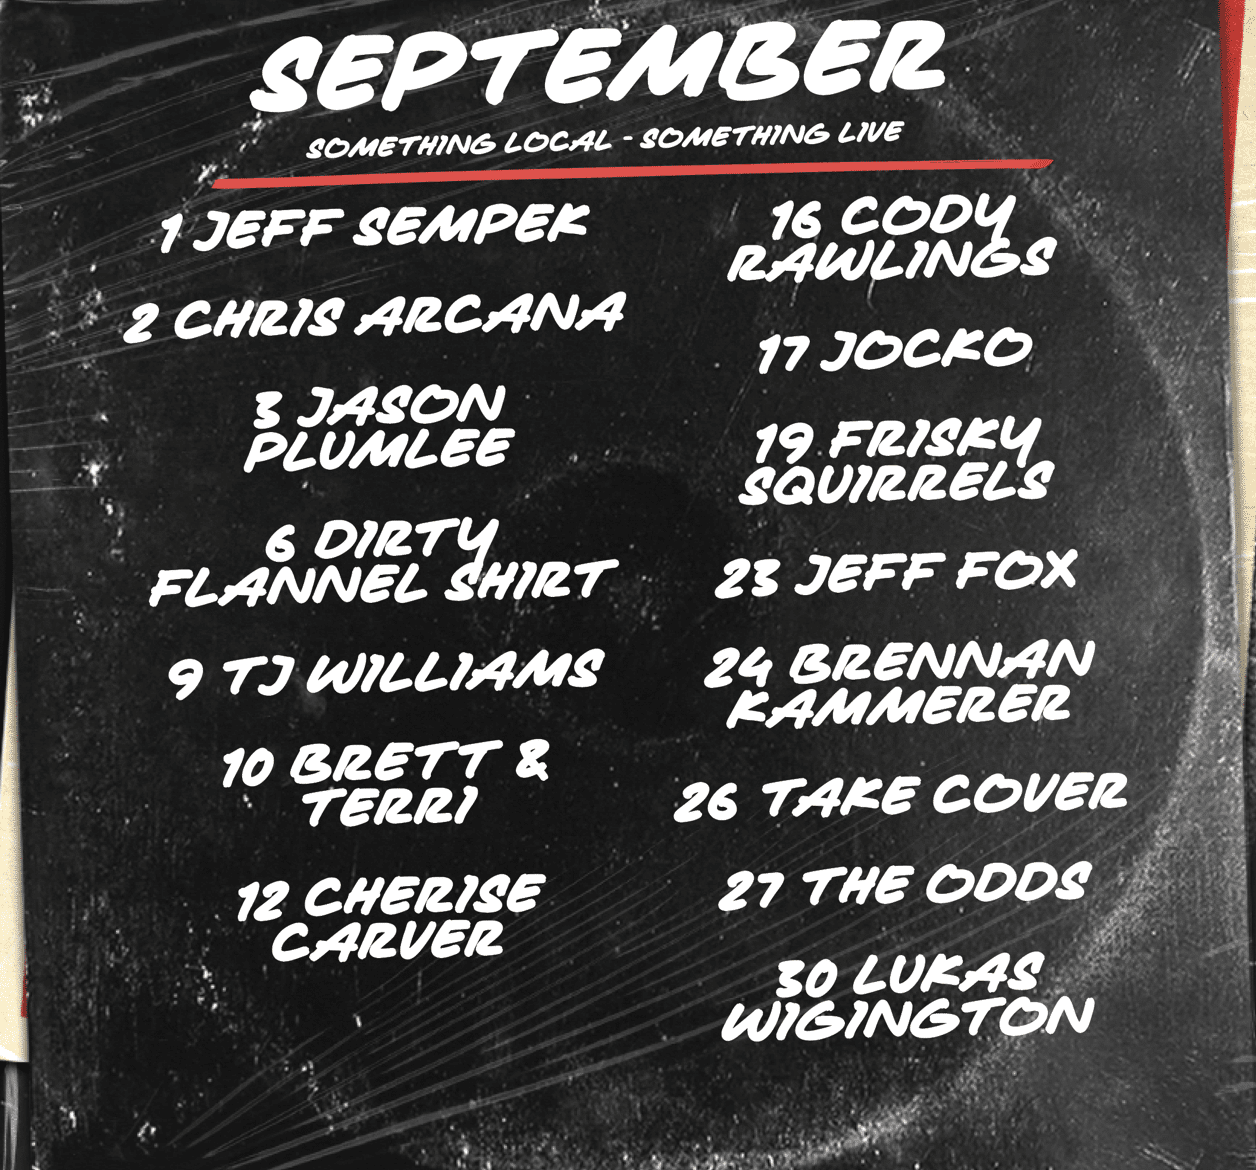 SEPTEMBER
SOMETHING LOCAL - SOMETHING LIVE
1 JEFF SEMPEK
2 CHRIS ARCANA
3 JASON
PLUMLEE
6 DIRTY
FLANNEL SHIRT
9 TJ WILLIAMS
10 BRETT &
TERRI
12 CHERISE
CARVER
16 CODY
RAWLINGS
17 JOCKO
19 FRISKY
SQUIRRELS
23 JEFF FOX
24 BRENNAN
KAMMERER
26 TAKE COVER
27 THE ODDS
30 LUKAS
WIGINGTON